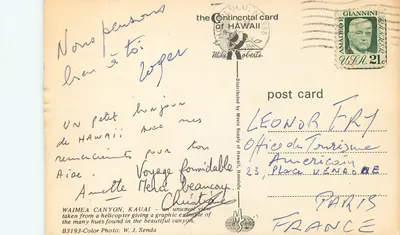 Nous pensons
bien à toi
the Continental card
of HAWAII
Mike Roberts
AMADEO P.
GIANNINI
U.S.A. 21c
post card
Un petit bonjour
de HAWAII avec mes
remerciements pour ton
Aide.
Voyage formidable
Annette Merci beaucoup
Christine
LEONOR FRY
Office du Tourisme
Americain
23, Place VENDOME
PARIS
FRANCE
WAIMEA CANYON, KAUAI — an unusual view
taken from a helicopter giving a graphic example of
the many hues found in the beautiful canyon.
B3193-Color Photo: W. J. Senda